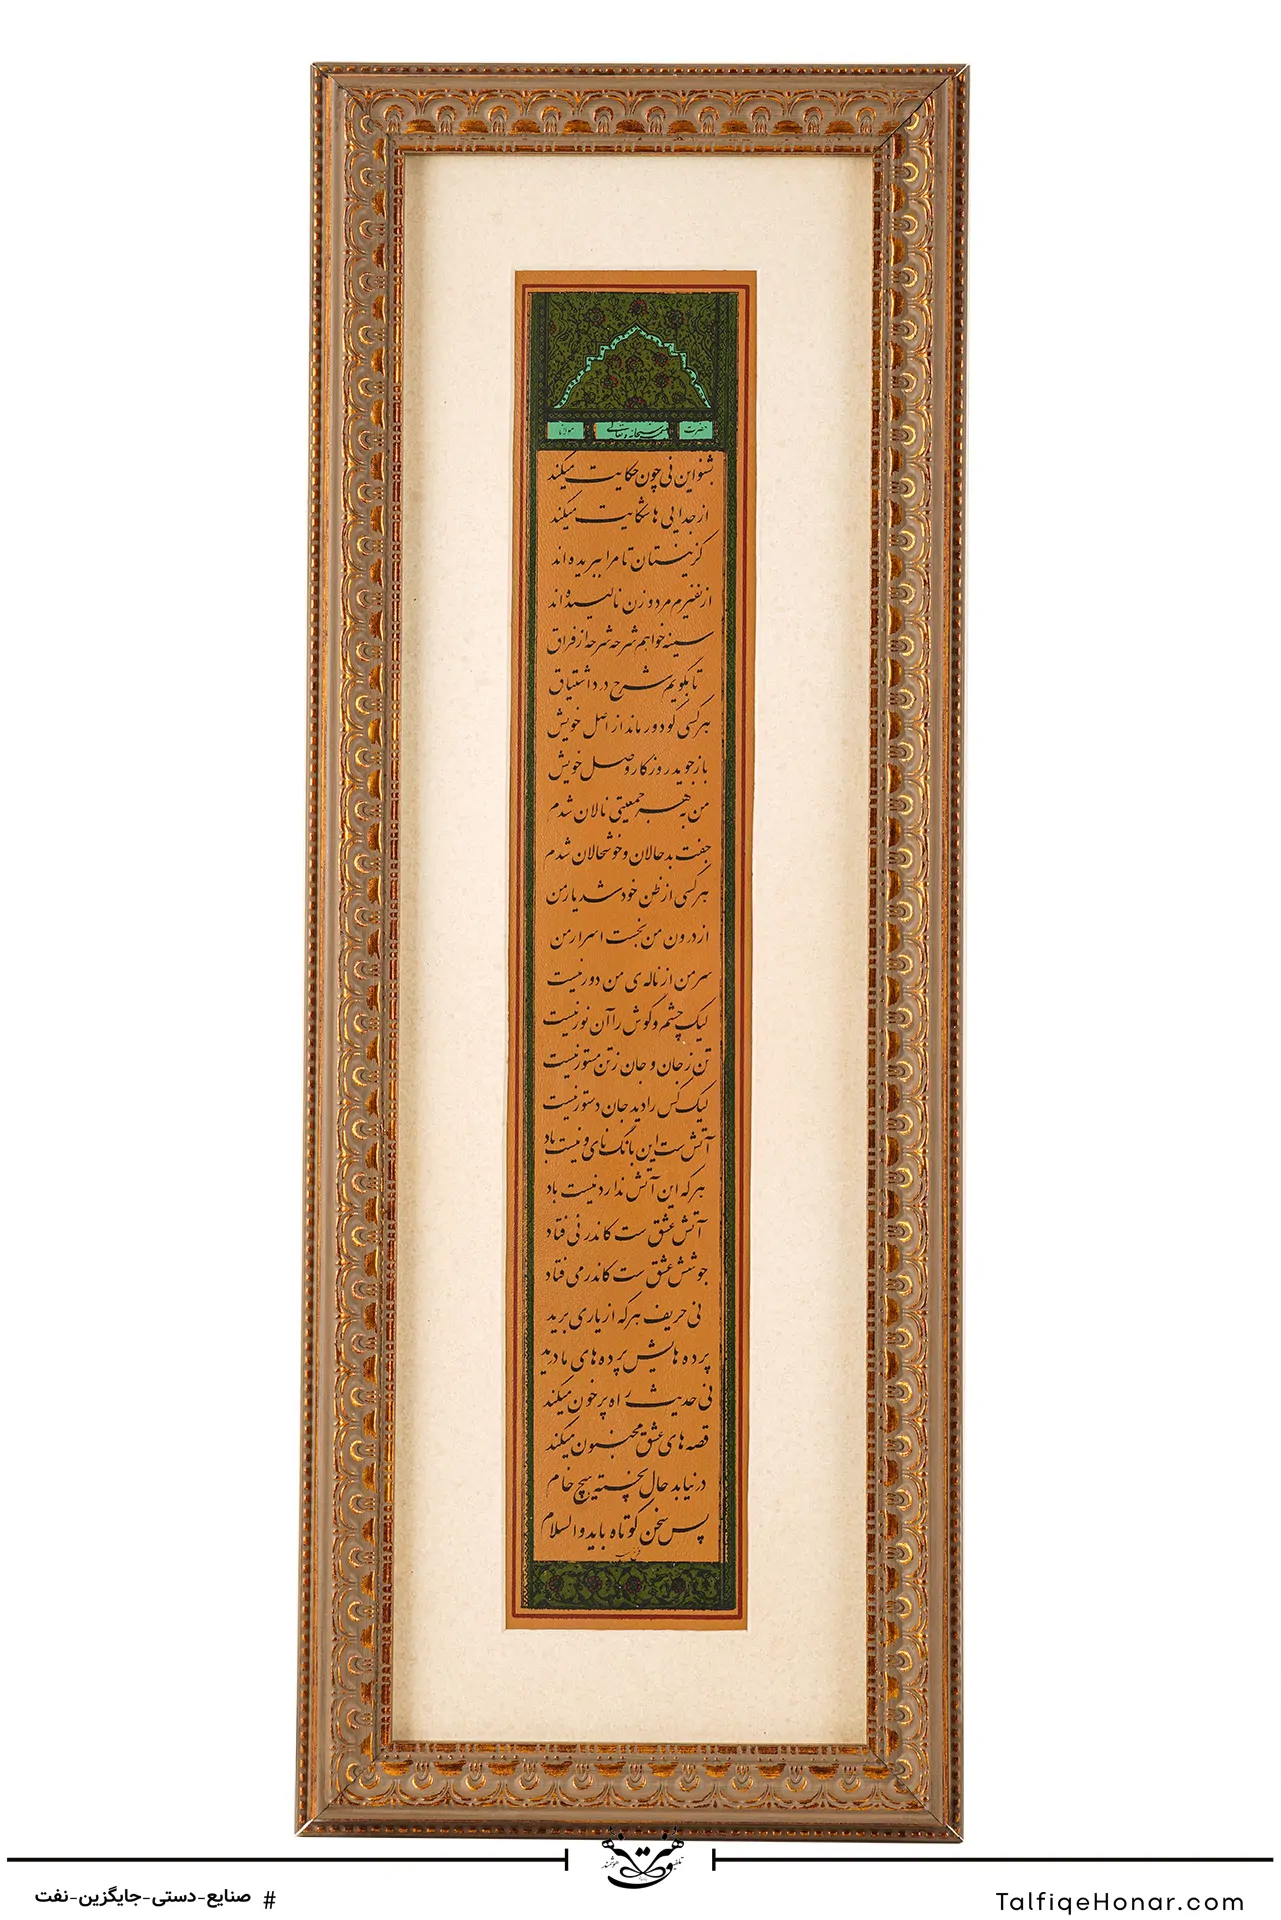 حضرت سبحانه و تعالی مولانا
بشنو این نی چون حکایت میکند
از جدایی ها شکایت میکند
کز نیستان تا مرا ببریده اند
از نفیرم مرد و زن نالیده اند
سینه خواهم شرحه شرحه از فراق
تا بگویم شرح درد اشتیاق
هر کسی کو دور ماند از اصل خویش
باز جوید روزگار وصل خویش
من به هر جمعیتی نالان شدم
جفت بدحالان و خوشحالان شدم
هر کسی از ظن خود شد یار من
از درون من نجست اسرار من
سر من از ناله ی من دور نیست
لیک چشم و گوش را آن نور نیست
تن ز جان و جان ز تن مستور نیست
لیک کس را دید جان دستور نیست
آتش ست این بانگ نای و نیست باد
هر که این آتش ندارد نیست باد
آتش عشق ست کاندر نی فتاد
جوشش عشق ست کاندر می فتاد
نی حریف هر که از یاری برید
پرده هایش پرده های ما درید
نی حدیث راه پر خون میکند
قصه های عشق مجنون میکند
در نیابد حال پخته هیچ خام
پس سخن کوتاه باید والسلام
# صنایع-دستی-جایگزین-نفت
TalfiqeHonar.com